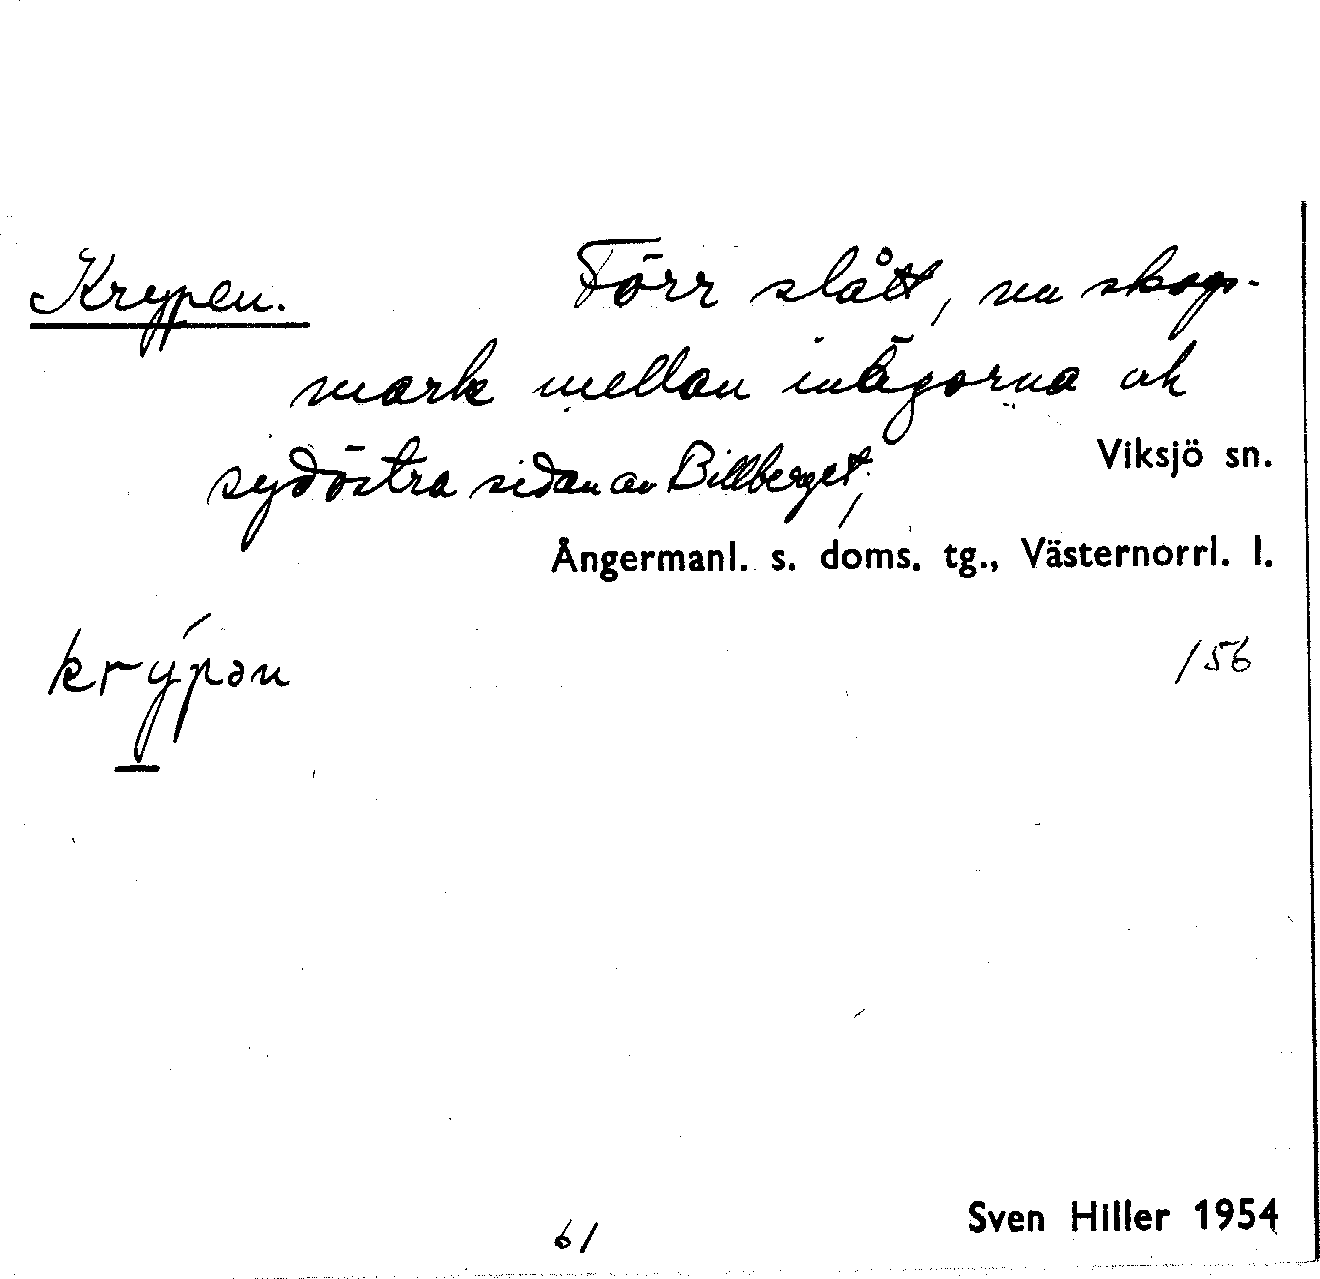 Krypen. Förr slått, nu skogs-
mark mellan inägorna och
sydöstra sidan av Billberget,
Viksjö sn.
Ångermanl. s. doms. tg., Västernorrl. l.
krýpən
/56
61
Sven Hiller 1954